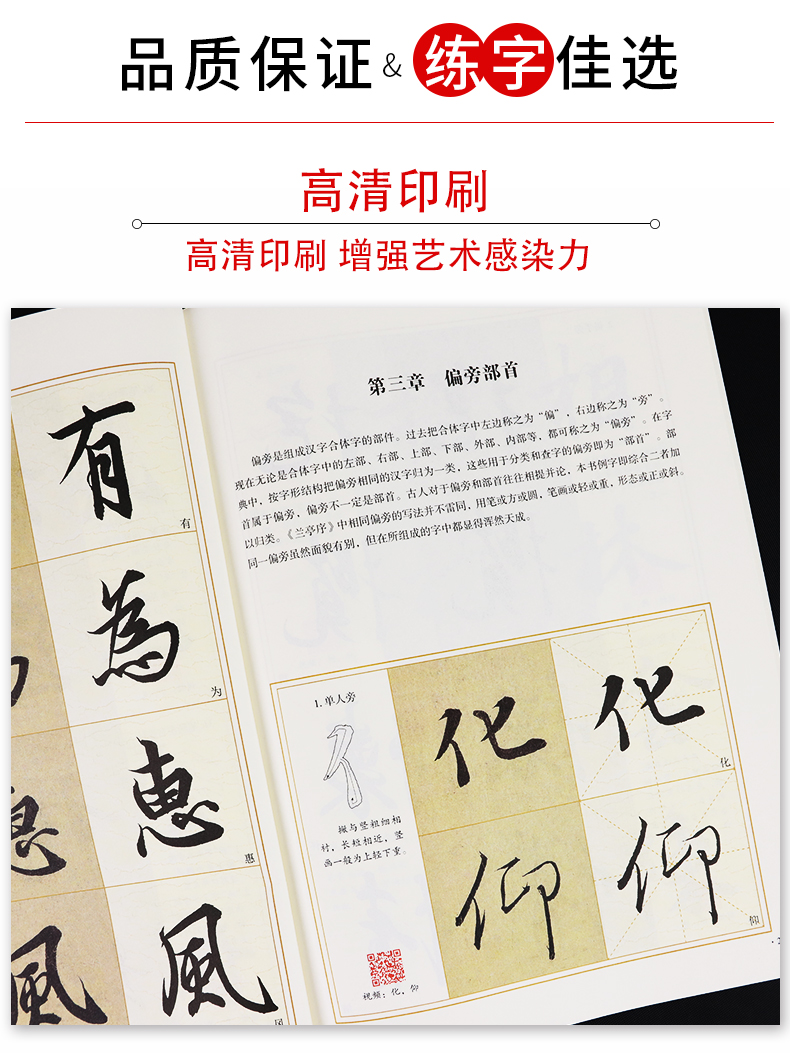 品质保证&练字佳选
高清印刷
高清印刷 增强艺术感染力
有
有
為
为
惠
惠
風
风
第三章 偏旁部首
偏旁是组成汉字合体字的部件。过去把合体字中左边称之为“偏”，右边称之为“旁”。
现在无论是合体字中的左部、右部、上部、下部、外部、内部等，都可称之为“偏旁”。在字
典中，按字形结构把偏旁相同的汉字归为一类，这些用于分类和查字的偏旁即为“部首”。部
首属于偏旁，偏旁不一定是部首。古人对于偏旁和部首往往相提并论，本书例字即综合二者加
以归类。《兰亭序》中相同偏旁的写法并不雷同，用笔或方或圆，笔画或轻或重，形态或正或斜。
同一偏旁虽然面貌有别，但在所组成的字中都显得浑然天成。
1.单人旁
亻
撇与竖粗细相
衬，长短相近，竖
画一般为上轻下重。
视频：化、仰
化
化
化
仰
仰
仰